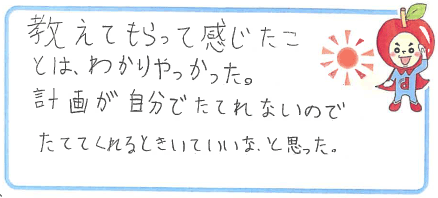 教えてもらって感じたこ
とは、わかりやっかった。
計画が自分でたてれないので
たててくれるときいていいな、と思った。
d